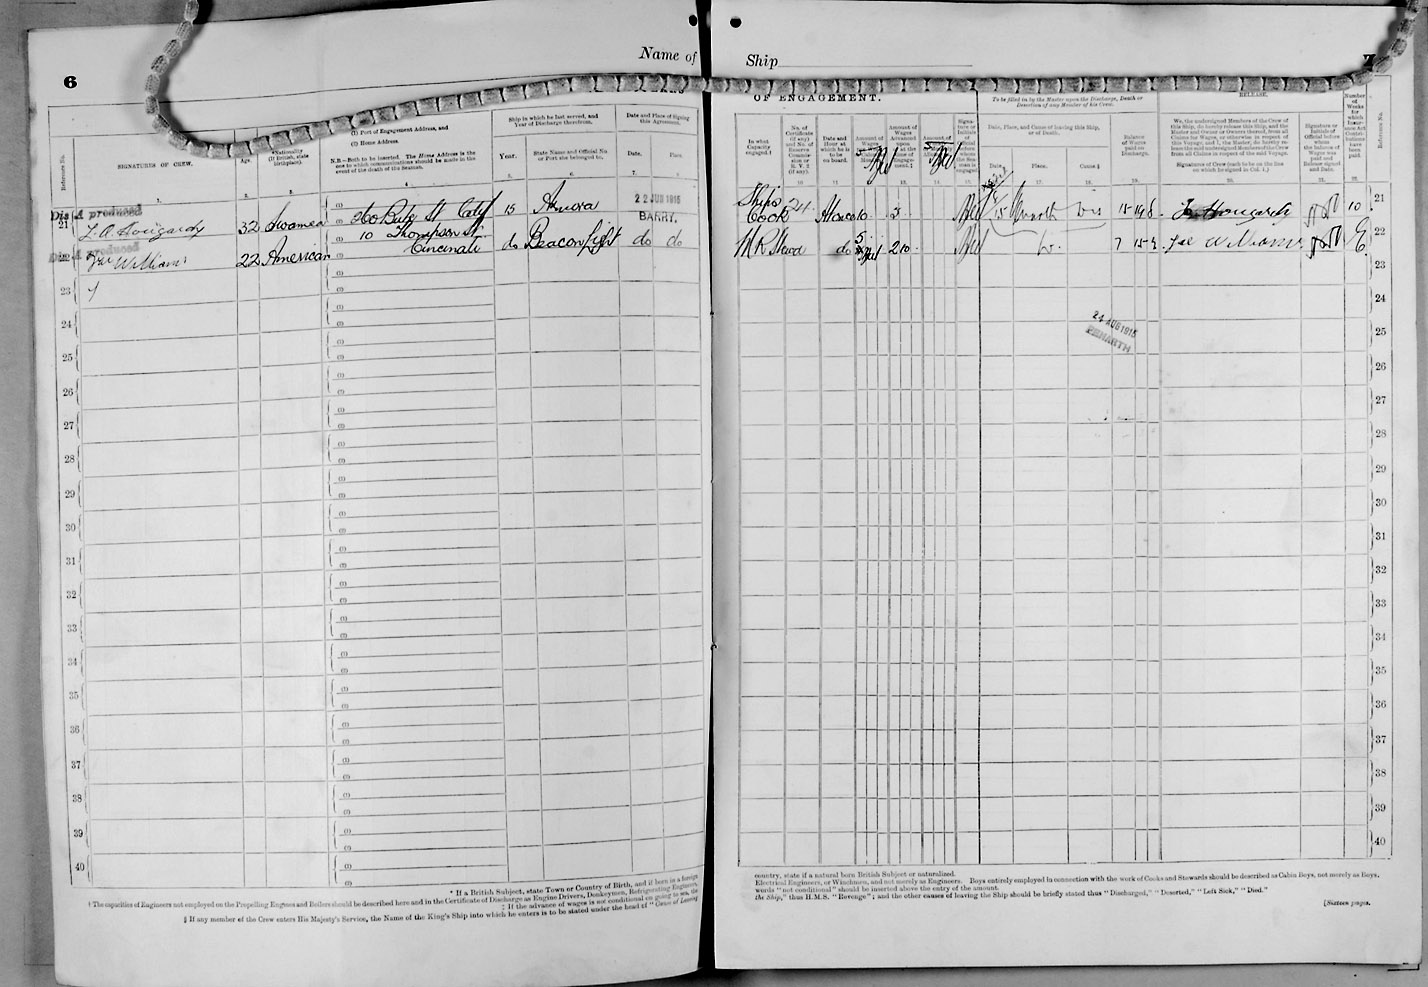 6
Name of
Ship
7
OF ENGAGEMENT.
Reference No.
SIGNATURES OF CREW.
Age.
Nationality
(If British, state
birthplace).
(1) Port of Engagement Address, and
(2) Home Address.
N.B.—Both to be inserted. The Home Address is the
one to which communications should be made in the
event of the death of the Seaman.
Ship in which he last served, and
Year of Discharge therefrom.
Year.
State Name and Official No.
or Port she belonged to.
Date and Place of Signing
this Agreement.
Date.
Place.
In what
Capacity
engaged.†
No. of
Certificate
(if any)
and No. of
Reserve
Commis-
sion or
R. V. 2
(if any).
Date and
hour at
which he is
to be
on board.
Amount of
Wages
Amount of
Wages
Advanced
upon
at the
time of
Engage-
ment.‡
Amount of
To be filled in by the Master upon the Discharge, Death or
Desertion of any Member of his Crew.
Date, Place, and Cause of leaving this Ship,
or of Death.
Date
Place.
Cause.§
Balance
of Wages
paid on
Discharge.
RELEASE.
We, the undersigned Members of the Crew of
this Ship, do hereby release this Ship, and the
Master and Owner or Owners thereof, from all
Claims for Wages, or otherwise in respect of
this Voyage, and I, the Master, do hereby re-
lease the undersigned Members of the Crew
from all Claims in respect of the said Voyage.
Signatures of Crew (each to be on the line
on which he signed in Col. 1.)
Signature or
Initials of
Official before
whom
the balance of
Wages was
paid and
Release signed
and Date.
Number
of
Weeks
for
which
Insur-
ance Act
Contri-
butions
have
been
paid.
Reference No.
Dis A produced
21
32 Swansea
260 Bute St Cdff
15 Amora
22 JUN 1915
BARRY.
Ships
Cook
24
At once
10
3
15 14 8
10
21
Dis A produced
22
Joe Williams
22 American
10 Thompson St.
Cincinati
do Beacon Light
do do
do
5
2 10
7 15 2
Joe Williams
22
23
24
25
26
27
28
29
30
31
32
33
34
35
36
37
38
39
40
24 AUG 1915
PENARTH
23
24
25
26
27
28
29
30
31
32
33
34
35
36
37
38
39
40
* If a British Subject, state Town or Country of Birth, and if born in a foreign
country, state if a natural born British Subject or naturalized.
† The capacities of Engineers not employed on the Propelling Engines and Boilers should be described here and in the Certificate of Discharge as Engine Drivers, Donkeymen, Refrigerating Engineers,
Electrical Engineers, or Winchmen, and not merely as Engineers. Boys entirely employed in connection with the work of Cooks and Stewards should be described as Cabin Boys, not merely as Boys.
‡ If the advance of wages is not conditional on going to sea, the
words "not conditional" should be inserted above the entry of the amount.
§ If any member of the Crew enters His Majesty's Service, the Name of the King's Ship into which he enters is to be stated under the head of "Cause of Leaving
the Ship," thus H.M.S. "Revenge"; and the other causes of leaving the Ship should be briefly stated thus "Discharged," "Deserted," "Left Sick," "Died."
[Sixteen pages.